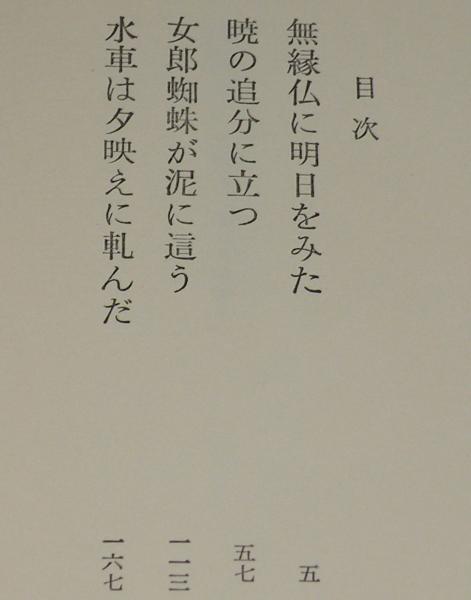 目次
無縁仏に明日をみた 五
暁の追分に立つ 五七
女郎蜘蛛が泥に這う 一一三
水車は夕映えに軋んだ 一六七